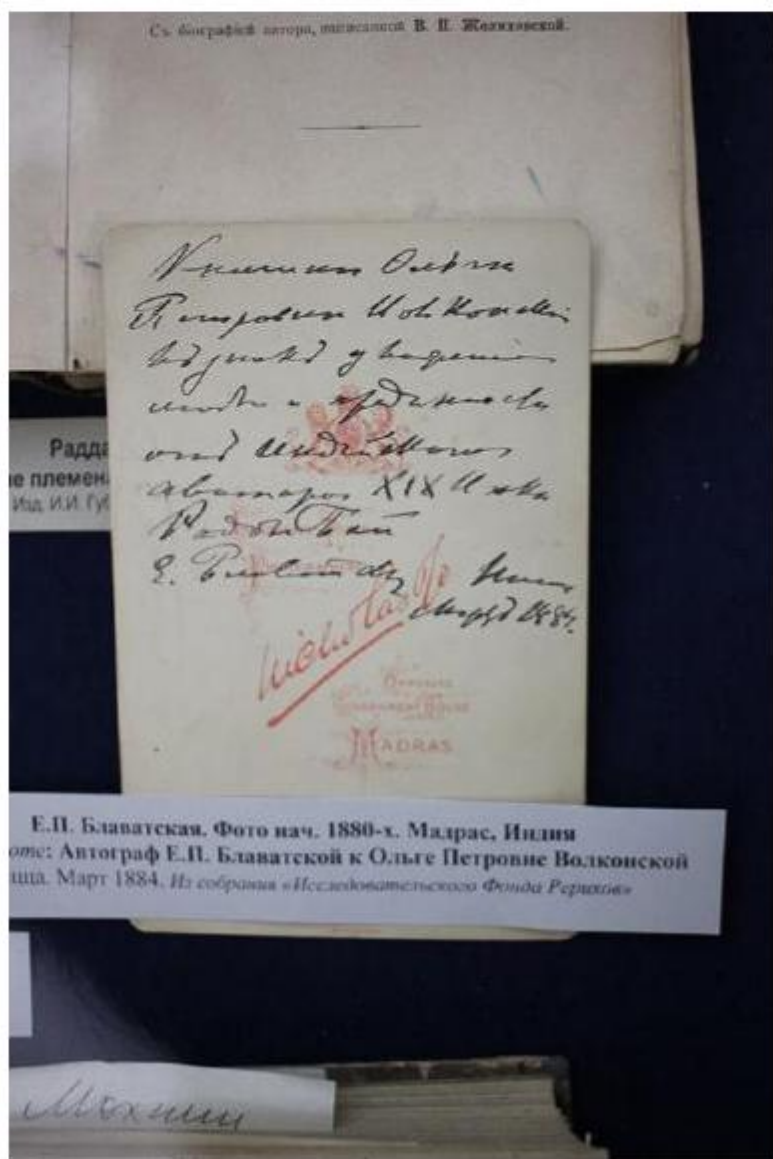 Съ біографіей автора, написанной В. П. Желиховской.
Княгинѣ Ольгѣ
Петровнѣ Волконской
въ знакъ уваженія
любви и преданности
отъ Индѣйскаго
аватара XIX Вѣка
Радда Бай
Е. Блаватской Ницца
Мартъ 1884.
Nicholas & Co
OPPOSITE
GOVERNMENT HOUSE
MADRAS
Радда
ие племена
Изд. И.И. Губ
Е.П. Блаватская. Фото нач. 1880-х. Мадрас, Индия
оте: Автограф Е.П. Блаватской к Ольге Петровне Волконской
ицца. Март 1884. Из собрания «Исследовательского Фонда Рерихов»